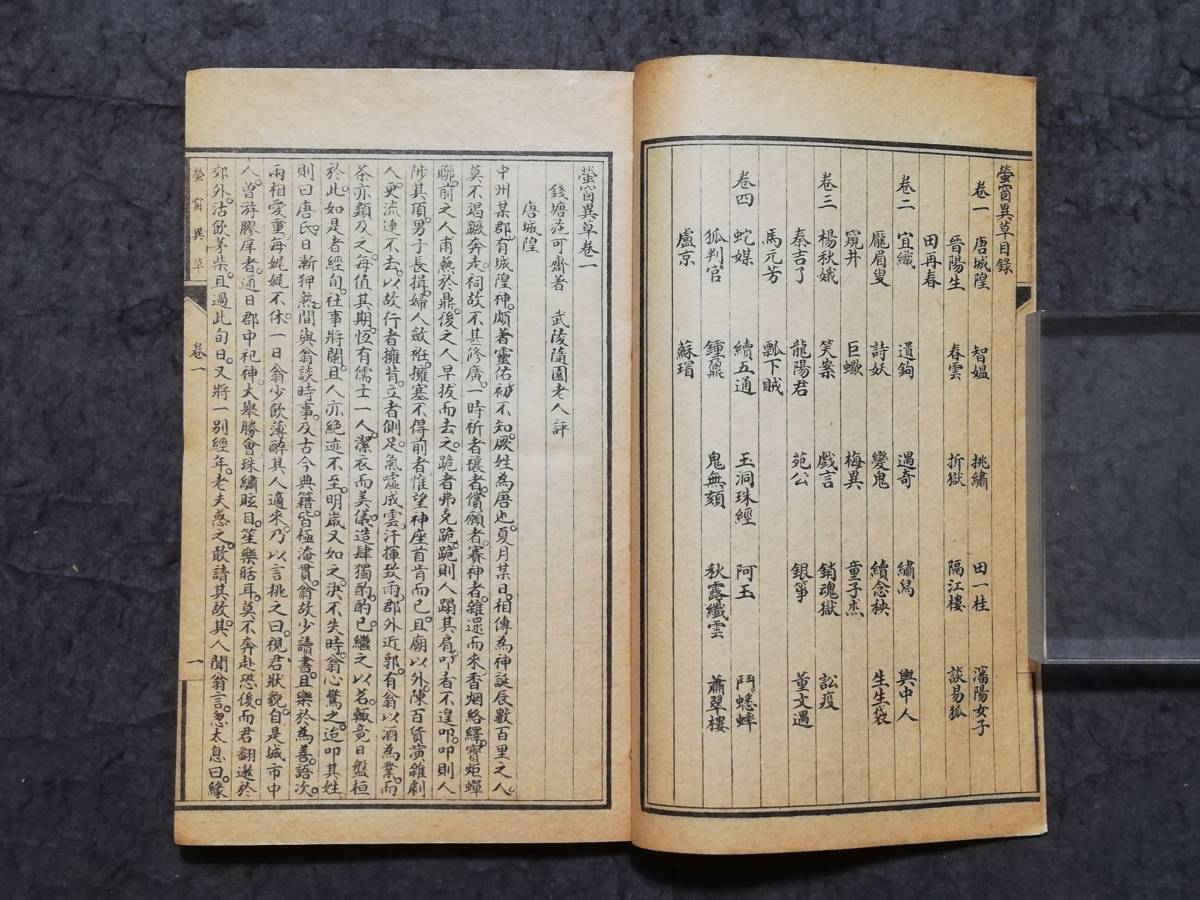 螢窗異草目錄
卷一 唐城隍 智媼 挑繡 田一桂 瀋陽女子
晉陽生 春雲 折獄 隔江樓 談易狐
田再春
卷二 宜織 遺鉤 遇奇 繡舄 輿中人
龐眉叟 詩妖 變鬼 續念秧 生生袋
窺井 巨蠍 梅異 童子杰
卷三 楊秋娥 笑案 戲言 銷魂獄 訟疫
秦吉了 龍陽君 苑公 銀箏 董文遇
馬元芳 瓢下賊
卷四 蛇媒 續五通 玉洞珠經 阿玉 鬥蟋蟀
狐判官 鍾鼐 鬼無頦 秋露纖雲 蕭翠樓
盧京 蘇瑁
螢窗異草卷一
錢塘施可齋著 武陵隨園老人評
唐城隍
中州某郡。有城隍神。頗著靈佑。初不知厥姓為唐也。夏月某日。相傳為神誕辰。數百里之人。
莫不竭蹶奔走。祠故不甚修廣。一時祈者禳者。償願者。賽神者。雜遝而來。香烟絡繹。寶炬蟬
聯。前之人甫爇於鼎。後之人早拔而去之。跪者弗克跪。跪則人蹋其肩。叩者不遑叩。叩則人
陟其頂。男子長揖。婦人斂袵。擁塞不得前者。惟望神座首肯而已。且廟以外。陳百貨。演雜劇
人更流連不去。以故行者擁背。立者側足。氣噓成雲。汗揮致雨。郡外近郭。有翁以酒為業。而
茶亦類及之。每值其期。恆有儒士一人。潔衣而美儀。造肆獨酌。酌已。繼之以茗。輒竟日盤桓
於此。如是者經旬。往事將闌。且人亦絕迹不至。明歲又如之。決不失時。翁心驚之。迨叩其姓
則曰唐氏。日漸狎熟。間與翁談時事。及古今典籍。皆極淹貫。翁故少讀書。且樂於為善。語次。
兩相愛重。每娓娓不休。一日翁少飲薄醉。其人適來。乃以言挑之曰。視君狀貌。自是城市中
人。曾游膠庠者。適日郡中祀神。大舉勝會。珠繡眩目。笙樂聒耳。莫不奔赴恐後。而君翻遨於
郊外。沽飲茅柴。且過此旬日。又將一別經年。老夫惑之。敢請其故。其人聞翁言。忽太息曰。緣
螢窗異草 卷一 一